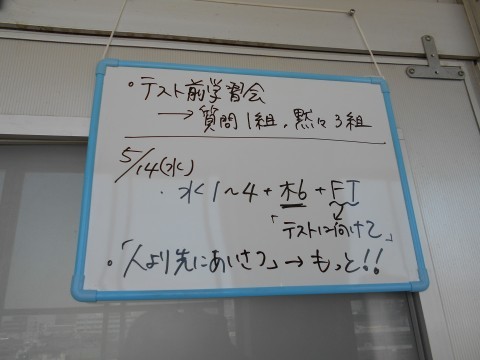 ・テスト前学習会
→ 質問1組、黙々3組
5/14(水)
・水1〜4+木6+FT
「テストに向けて」
・「人より先にあいさつ」→もっと!!